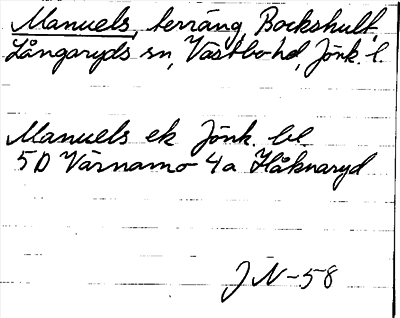 Manuels, terräng, Bockshult,
Långaryds sn, Västbo hd, Jönk. l.
Manuels ek Jönk. bl.
5D Värnamo 4a Håknaryd
JN-58